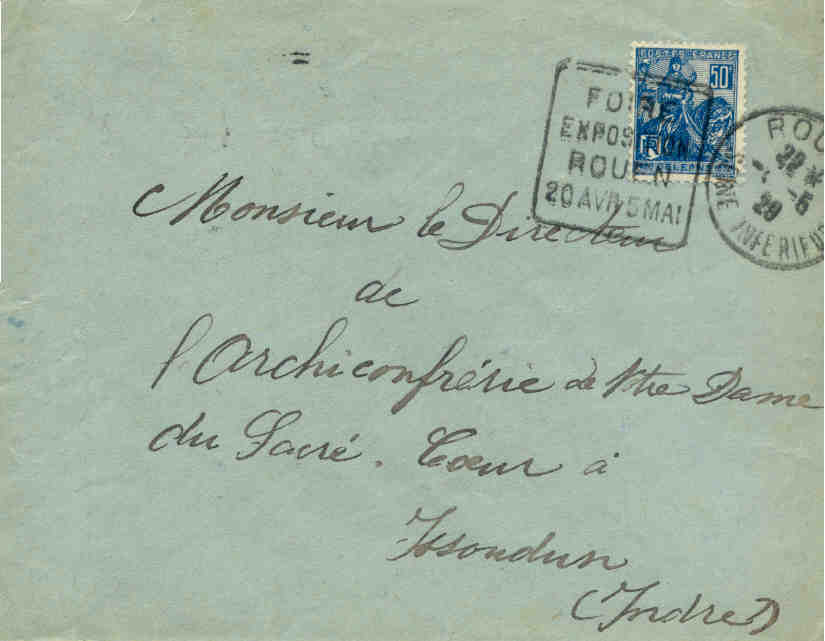 POSTES FRANCE
50c
RF
ORLEANS
FOIRE
EXPOSITION
ROUEN
20 AVR 5 MAI
ROU
22 *
-5
29
INFERIEUR
Monsieur le Directeur
de
l'Archiconfrérie de Ntre Dame
du Sacré. Coeur à
Issoudun
(Indre)